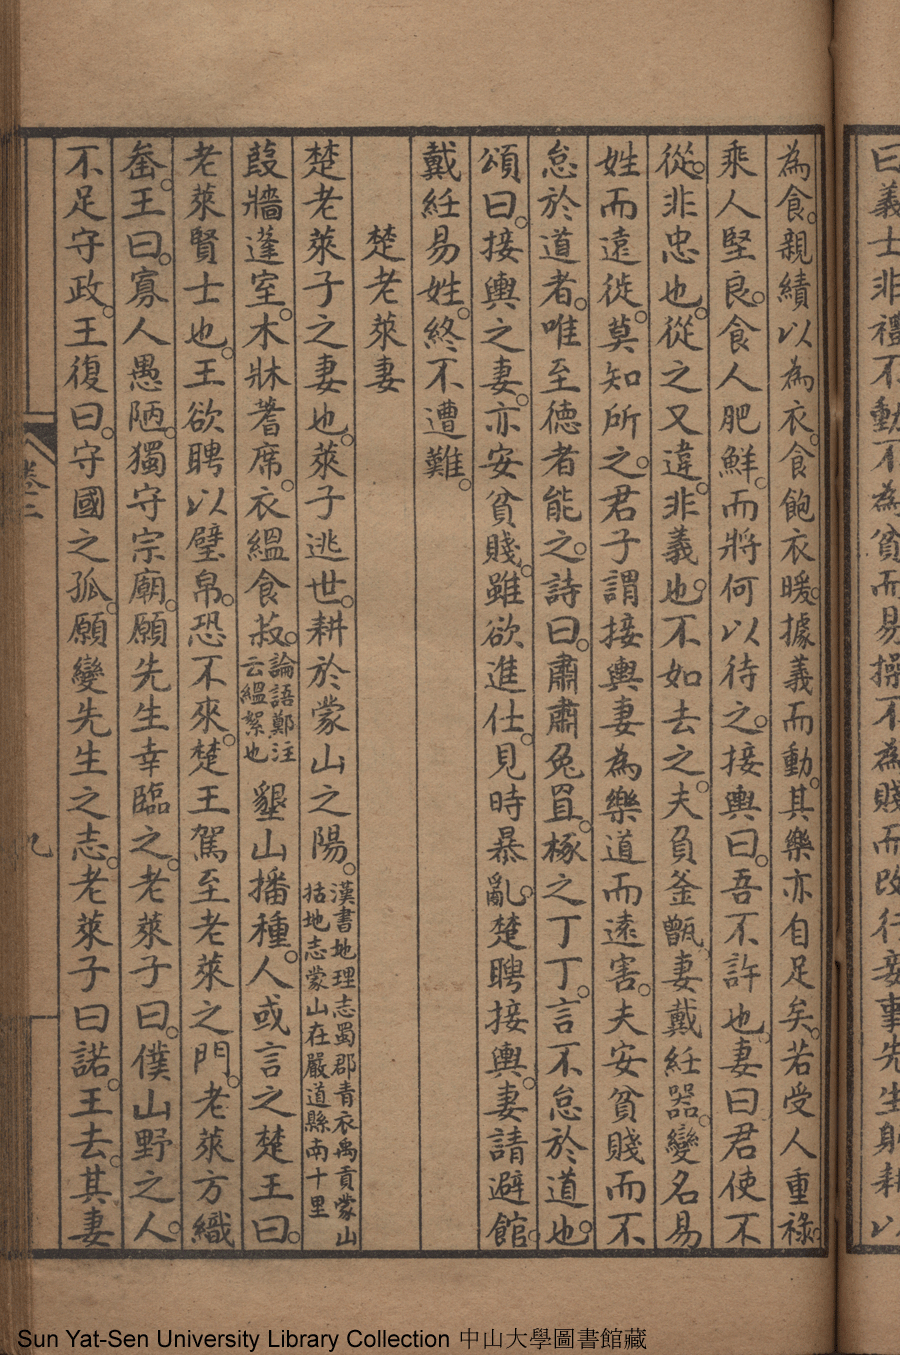 曰義士非禮不動不為貧而易操不為賤而改行妾事先生躬耕以
為食親績以為衣食飽衣暖據義而動其樂亦自足矣若受人重祿
乘人堅良食人肥鮮而將何以待之接輿曰吾不許也妻曰君使不
從非忠也從之又違非義也不如去之夫負釜甑妻戴紝器變名易
姓而遠徙莫知所之君子謂接輿妻為樂道而遠害夫安貧賤而不
怠於道者唯至德者能之詩曰肅肅兔罝椓之丁丁言不怠於道也
頌曰接輿之妻亦安貧賤雖欲進仕見時暴亂楚聘接輿妻請避館
戴紝易姓終不遭難
楚老萊妻
楚老萊子之妻也萊子逃世耕於蒙山之陽漢書地理志蜀郡青衣禹貢蒙山括地志蒙山在嚴道縣南十里
葭牆蓬室木牀蓍席衣縕食菽論語鄭注云縕絮也墾山播種人或言之楚王曰
老萊賢士也王欲聘以璧帛恐不來楚王駕至老萊之門老萊方織
畚王曰寡人愚陋獨守宗廟願先生幸臨之老萊子曰僕山野之人
不足守政王復曰守國之孤願變先生之志老萊子曰諾王去其妻
卷二
九
Sun Yat-Sen University Library Collection 中山大學圖書館藏